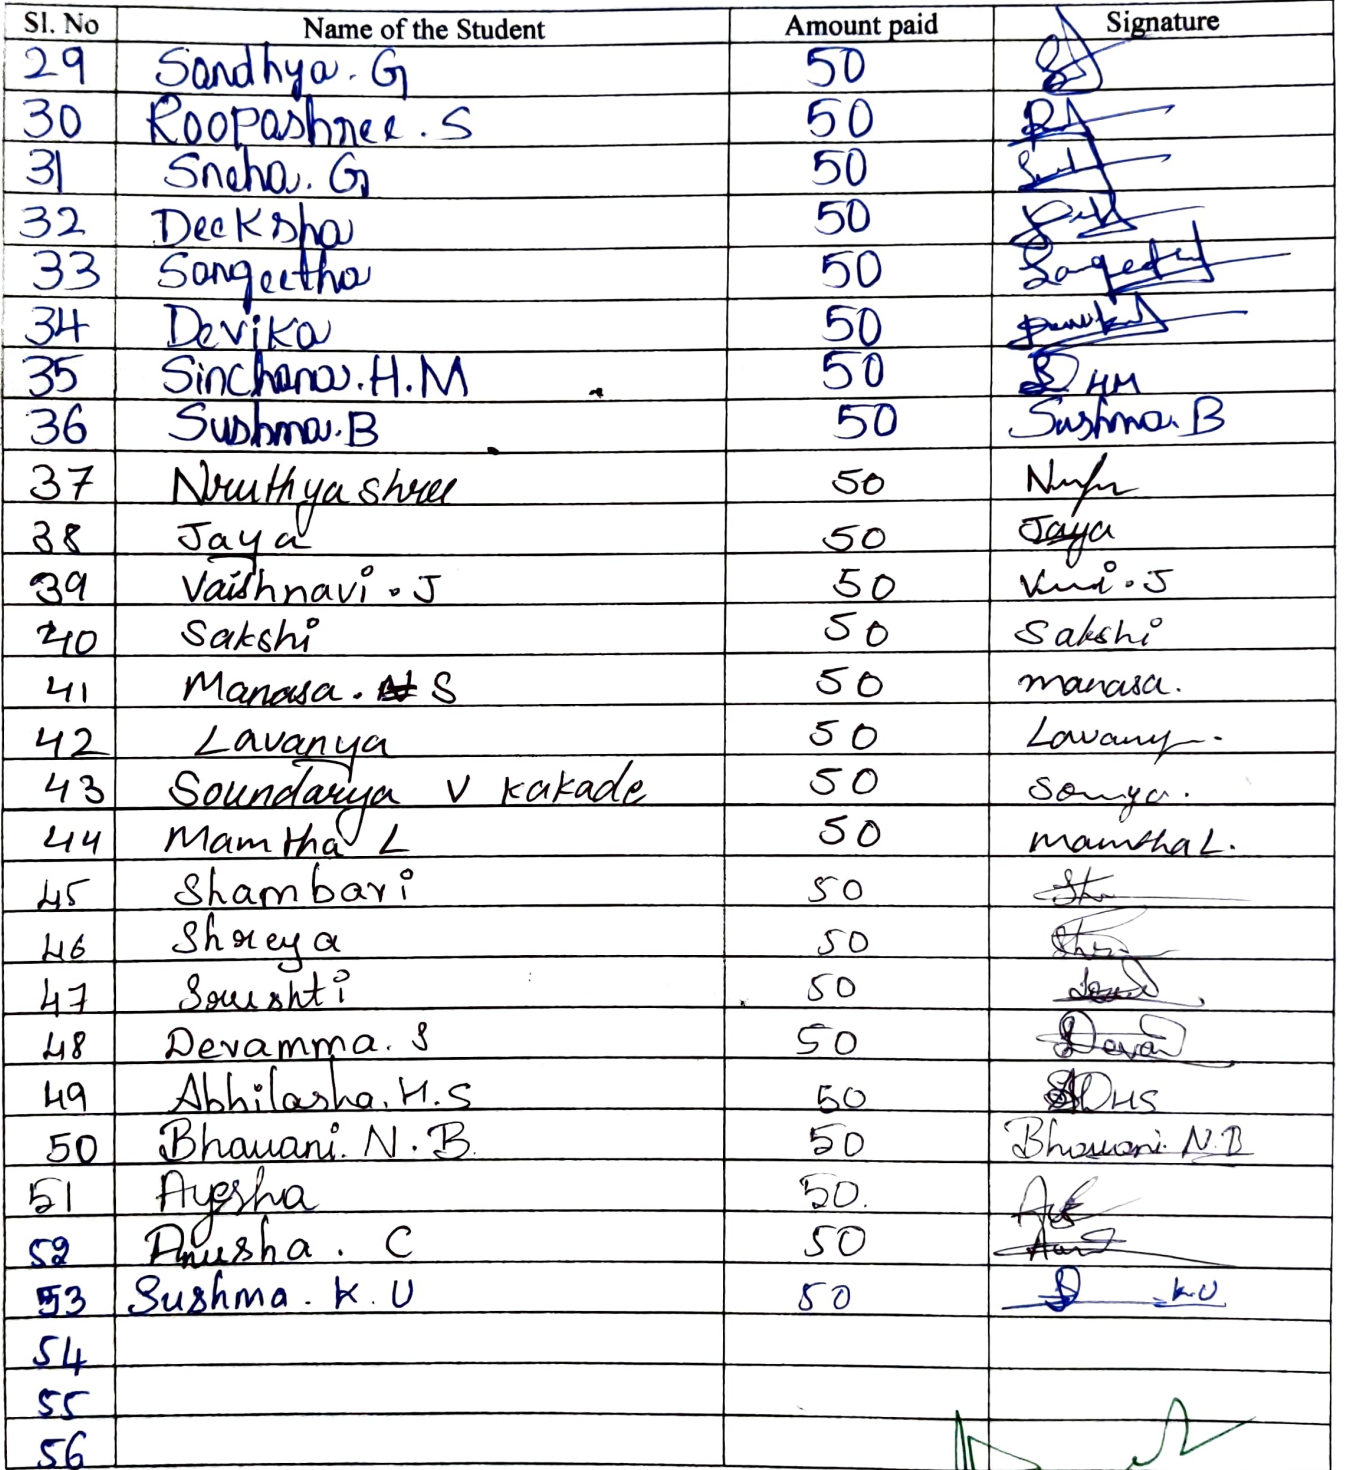 Sl. No Name of the Student Amount paid Signature
29 Sandhya. G 50
30 Roopashree. S 50
31 Sneha. G 50
32 Deeksha 50
33 Sangeetha 50 Sangeeth
34 Devika 50
35 Sinchana. H.M 50 HM
36 Sushma. B 50 Sushma. B
37 Nruthyashree 50
38 Jaya 50 Jaya
39 Vaishnavi. J 50
40 Sakshi 50 Sakshi
41 Manasa. S 50 manasa.
42 Lavanya 50
43 Soundarya V Kakade 50
44 Mamtha L 50 mamtha L.
45 Shambavi 50
46 Shreya 50
47 Srushti 50
48 Devamma. S 50
49 Abhilasha. H.S 50 HS
50 Bhavani. N. B. 50 Bhavani. N.B
51 Ayesha 50.
52 Anusha. C 50
53 Sushma. K. U 50 KU
54
55
56